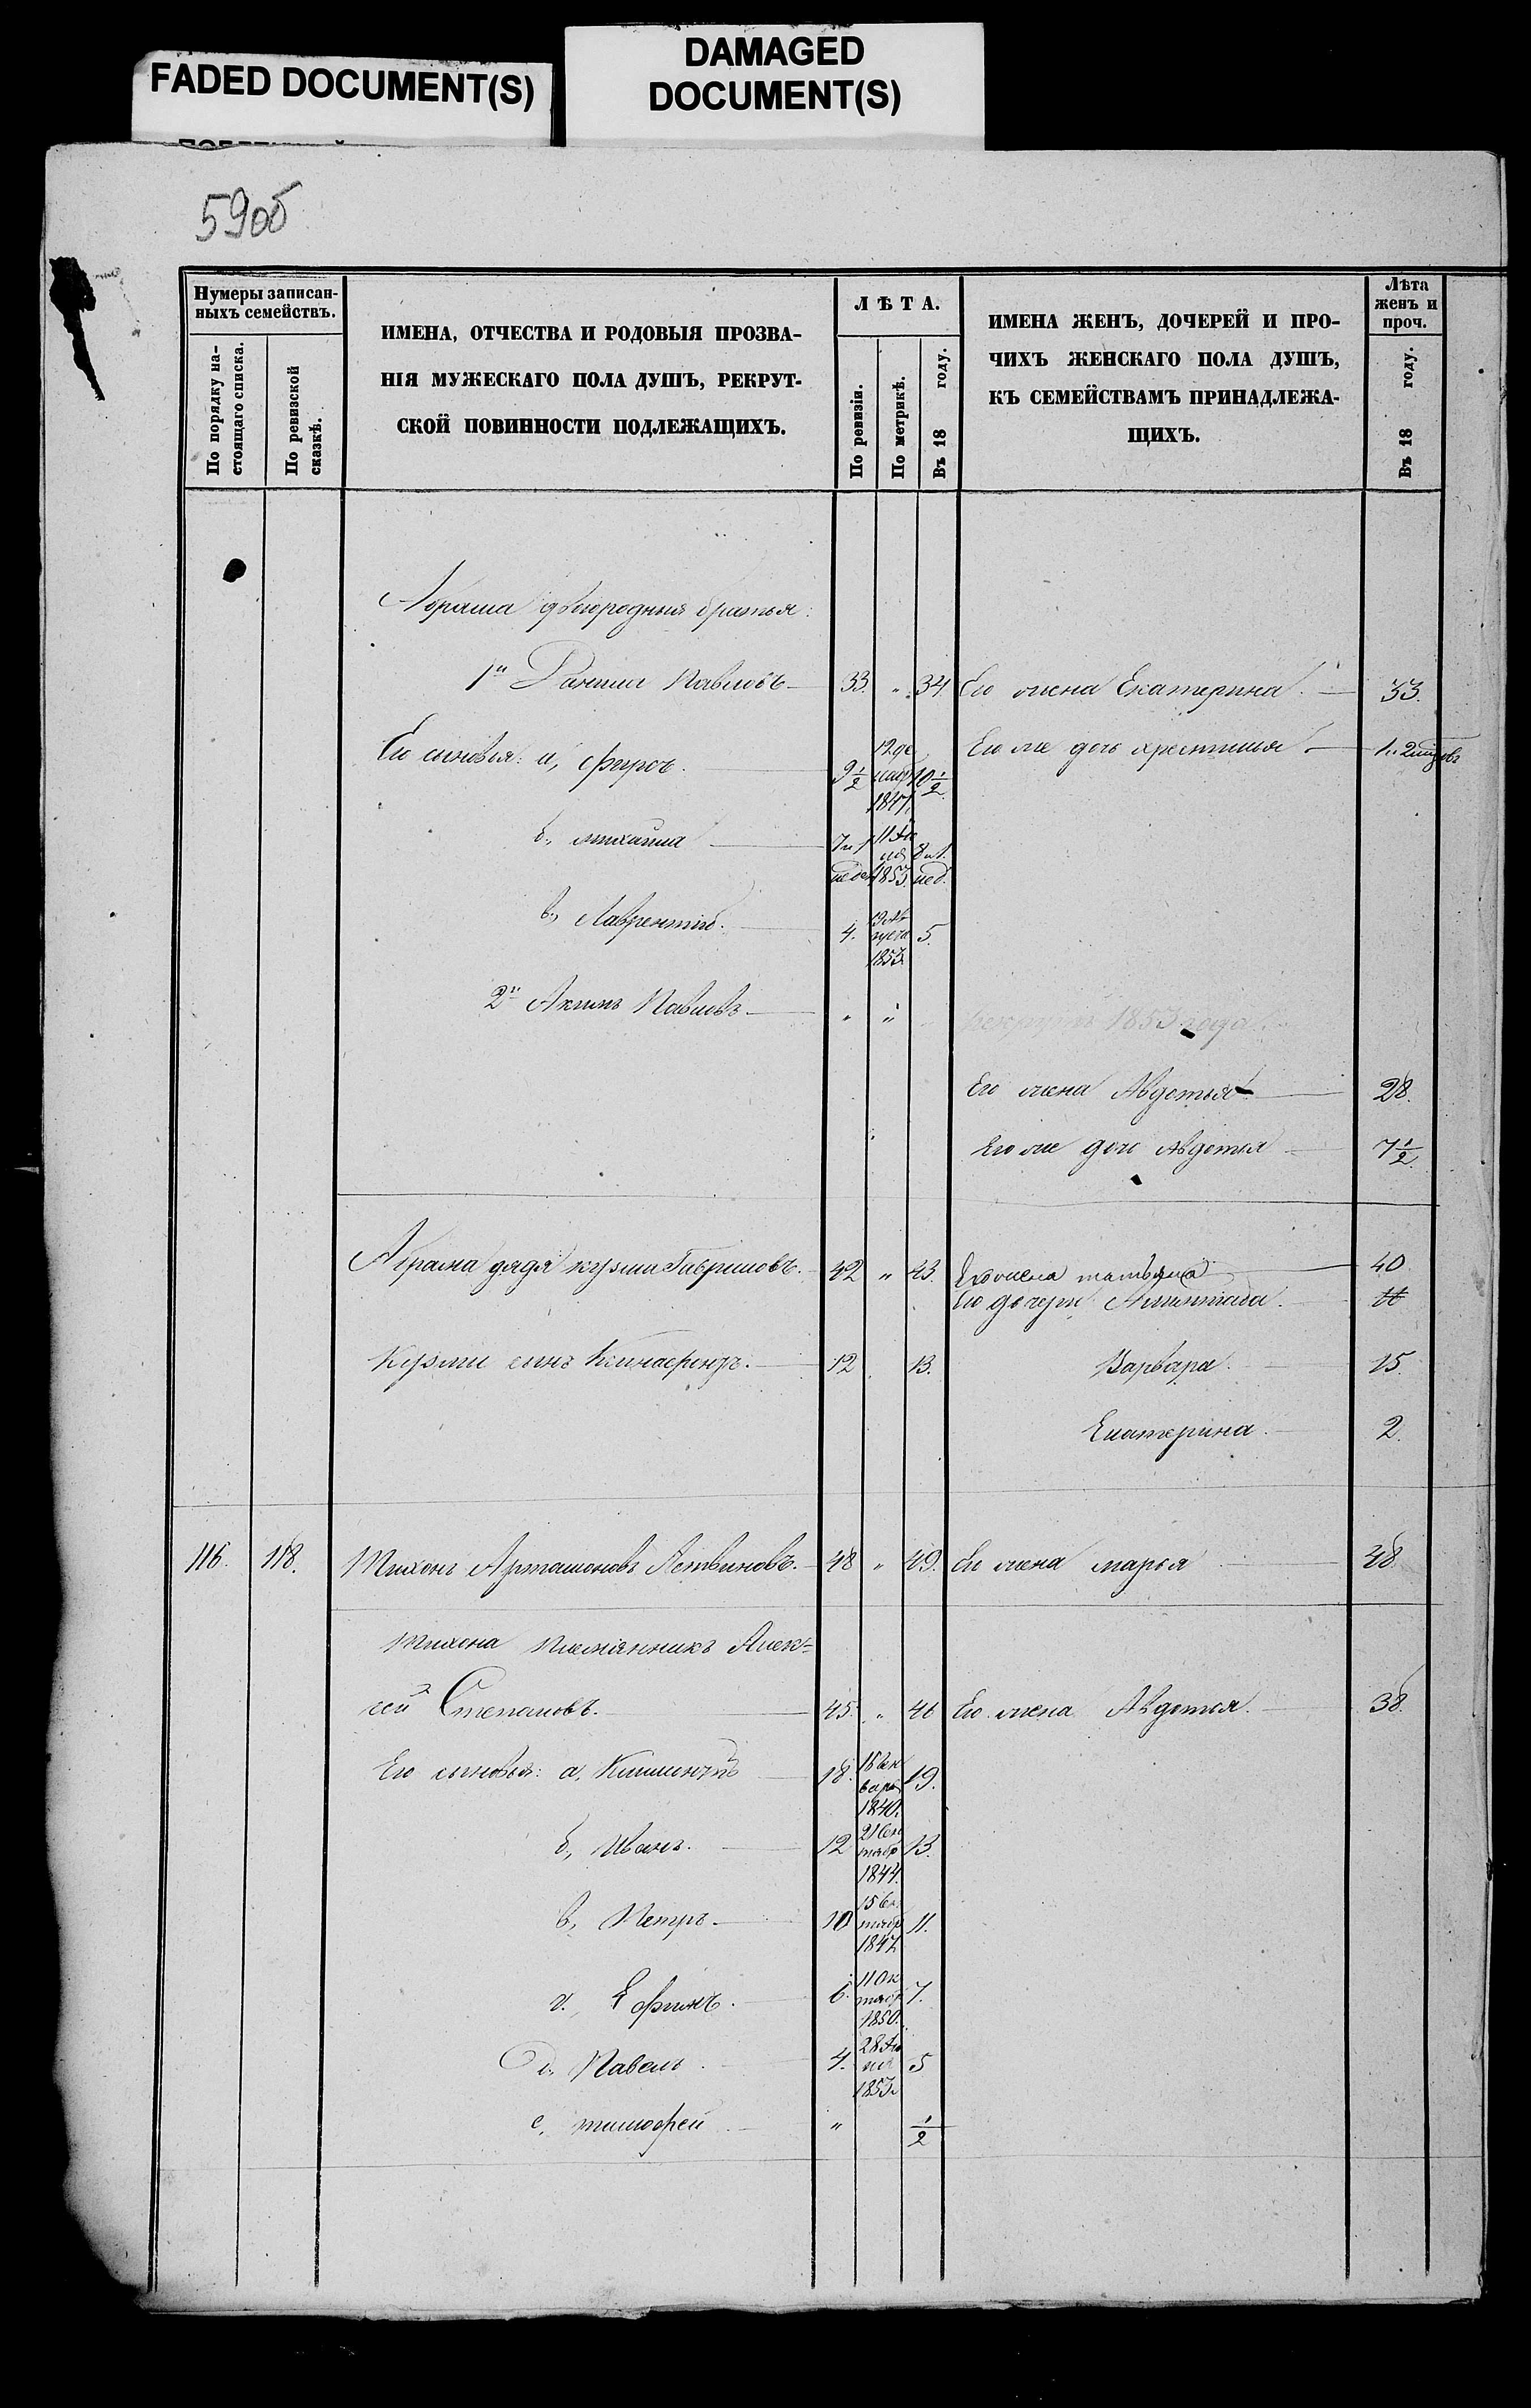 FADED DOCUMENT(S)
DAMAGED
DOCUMENT(S)
59об
Нумеры записан-
ныхъ семействъ.
По порядку на-
стоящаго списка.
По ревизской
сказкѣ.
ИМЕНА, ОТЧЕСТВА И РОДОВЫЯ ПРОЗВА-
НІЯ МУЖЕСКАГО ПОЛА ДУШЪ, РЕКРУТ-
СКОЙ ПОВИННОСТИ ПОДЛЕЖАЩИХЪ.
ЛѢТА.
По ревизіи.
По метрикѣ.
Въ 18 году.
ИМЕНА ЖЕНЪ, ДОЧЕРЕЙ И ПРО-
ЧИХЪ ЖЕНСКАГО ПОЛА ДУШЪ,
КЪ СЕМЕЙСТВАМЪ ПРИНАДЛЕЖА-
ЩИХЪ.
Лѣта
женъ и
проч.
Въ 18 году.
Абрама двоюродныя братья:
1й Данила Павловъ 33. " 34 Его жена Екатерина. 33.
Его сыновья: а, 9½ 1847. 10½ Его же дочь 1.
б, михаила 7 и 1 недел. 1853. 8 и 1. нед.
в, Лаврентій. 4. 1853. 5.
2й Акимъ Павловъ " " рекрутъ 1853 года.
Его жена Авдотья 28.
Его же дочь Авдотья 7½
Абрама дядя кузма Гавриловъ. 42 " 43. Его жена татьяна 40
Его дочери
Кузмы сынъ 12 13. Варвара. 15.
Екатерина. 2.
116. 118. Тихонъ Артамоновъ Литвиновъ. 48 " 49. Его жена марья 48
Тихона племянникъ Алек-
сей Степановъ. 45. " 46 Его жена Авдотья. 38.
Его сыновья: а, 18. 1840. 19.
б, Иванъ. 12 1844. 13.
в, Петръ. 10 1847 11.
г. Ефимъ. 6. 11 Ок
тябр 1850. 7.
д. Павелъ. 4. 28 1853. 5
е, тимофей " ½